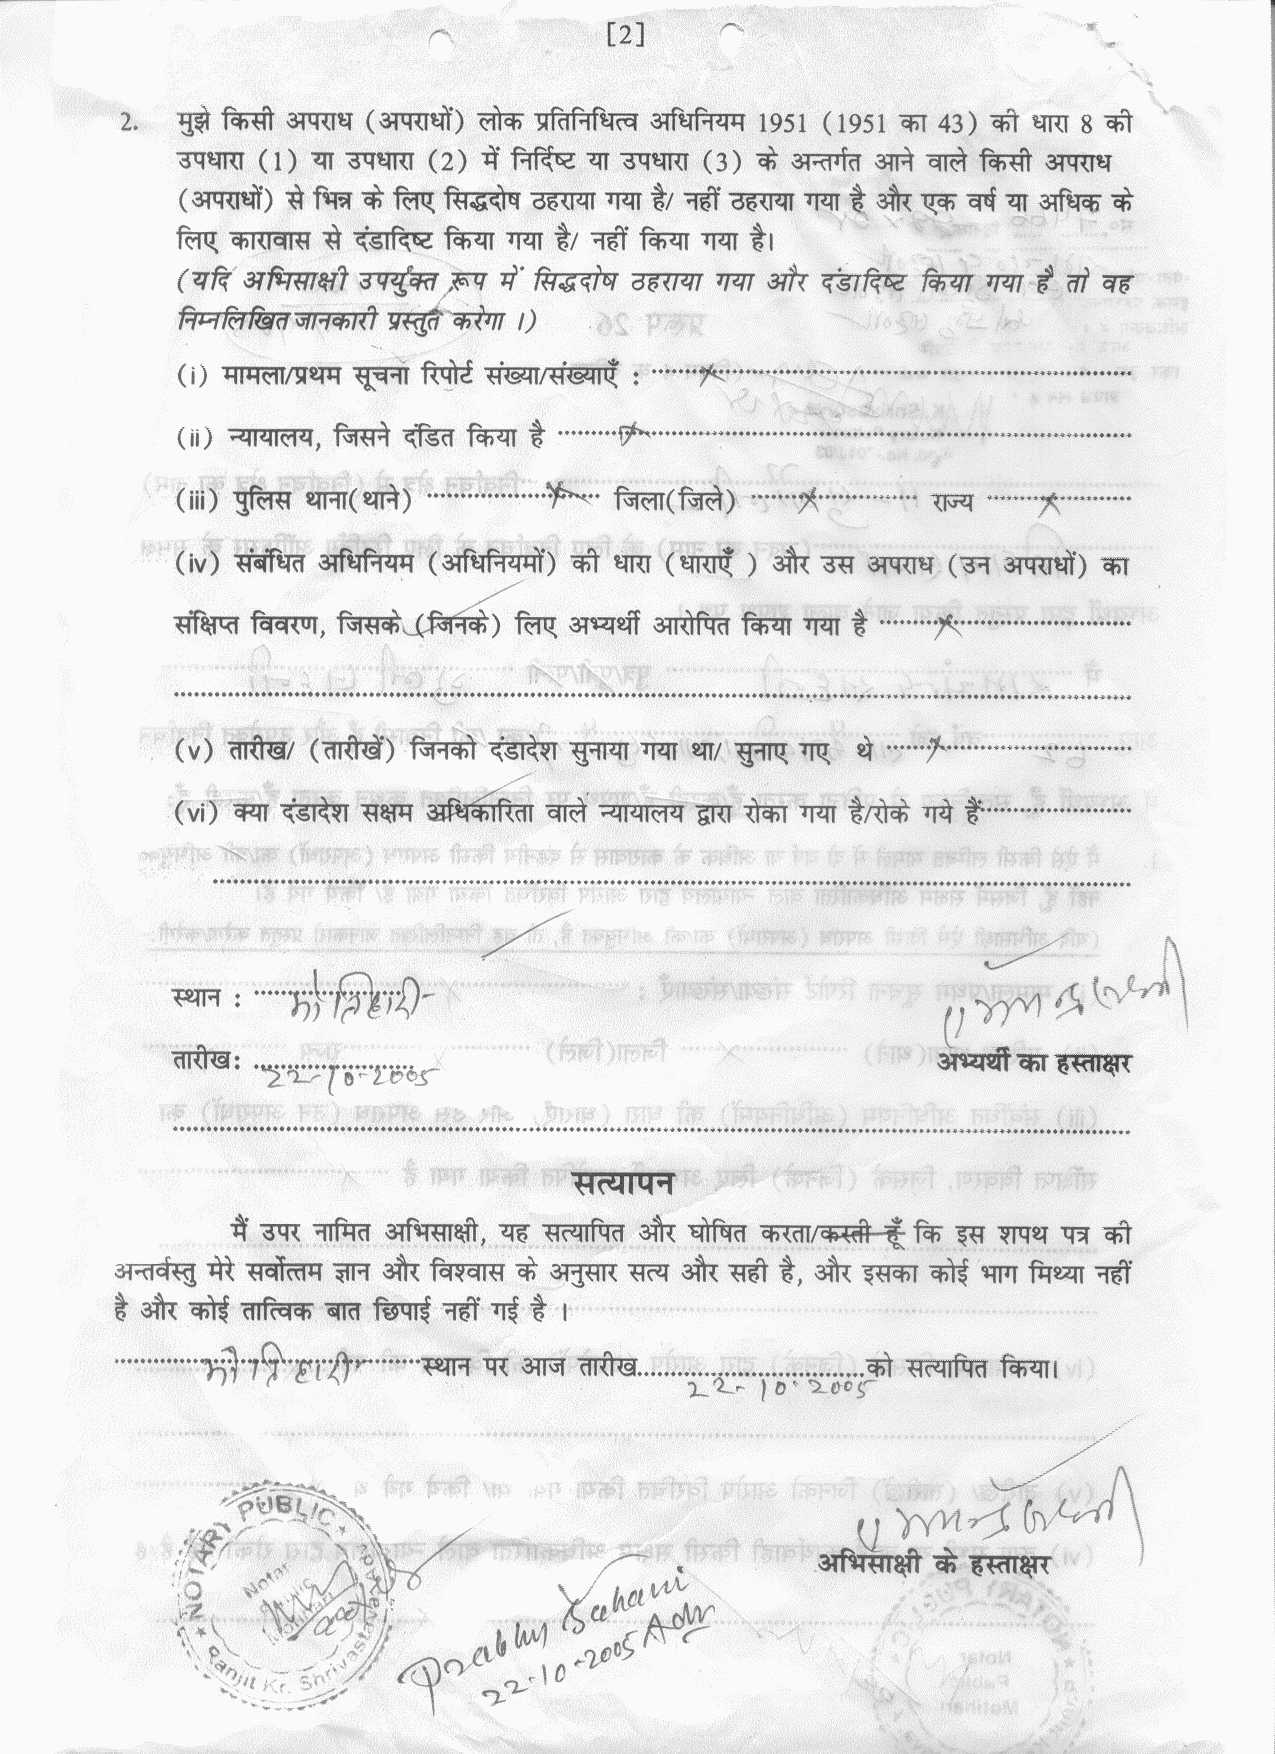 [2]
2. मुझे किसी अपराध (अपराधों) लोक प्रतिनिधित्व अधिनियम 1951 (1951 का 43) की धारा 8 की
उपधारा (1) या उपधारा (2) में निर्दिष्ट या उपधारा (3) के अन्तर्गत आने वाले किसी अपराध
(अपराधों) से भिन्न के लिए सिद्धदोष ठहराया गया है/ नहीं ठहराया गया है और एक वर्ष या अधिक के
लिए कारावास से दंडादिष्ट किया गया है/ नहीं किया गया है।
(यदि अभिसाक्षी उपर्युक्त रूप में सिद्धदोष ठहराया गया और दंडादिष्ट किया गया है तो वह
निम्नलिखित जानकारी प्रस्तुत करेगा ।)
(i) मामला/प्रथम सूचना रिपोर्ट संख्या/संख्याएँ : x
(ii) न्यायालय, जिसने दंडित किया है x
(iii) पुलिस थाना(थाने) x जिला(जिले) x राज्य x
(iv) संबंधित अधिनियम (अधिनियमों) की धारा (धाराएँ ) और उस अपराध (उन अपराधों) का
संक्षिप्त विवरण, जिसके (जिनके) लिए अभ्यर्थी आरोपित किया गया है x
(v) तारीख/ (तारीखें) जिनको दंडादेश सुनाया गया था/ सुनाए गए थे x
(vi) क्या दंडादेश सक्षम अधिकारिता वाले न्यायालय द्वारा रोका गया है/रोके गये हैं
स्थान : मोतिहारी
तारीख: 22-10-2005
अभ्यर्थी का हस्ताक्षर
सत्यापन
मैं उपर नामित अभिसाक्षी, यह सत्यापित और घोषित करता/करती हूँ कि इस शपथ पत्र की
अन्तर्वस्तु मेरे सर्वोत्तम ज्ञान और विश्वास के अनुसार सत्य और सही है, और इसका कोई भाग मिथ्या नहीं
है और कोई तात्विक बात छिपाई नहीं गई है ।
मोतिहारी स्थान पर आज तारीख 22-10-2005 को सत्यापित किया।
अभिसाक्षी के हस्ताक्षर
NOTARY PUBLIC
Ranjit Kr. Shrivastava
Prabhu Sahani
22-10-2005 Adv